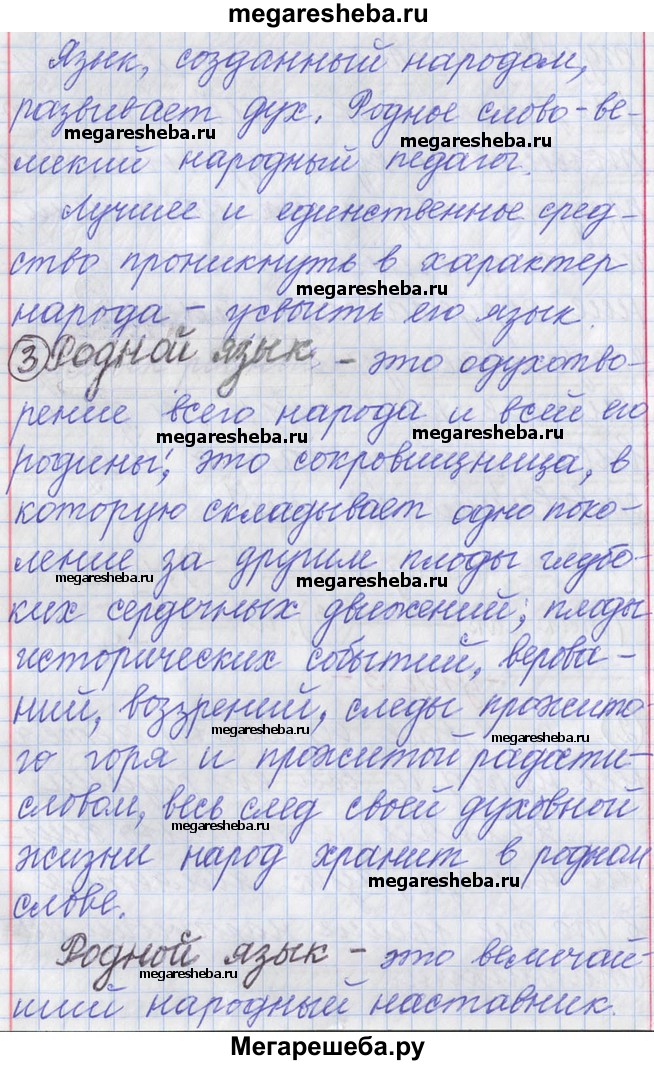 megaresheba.ru
Язык, созданный народом,
развивает дух. Родное слово - ве-
megaresheba.ru megaresheba.ru
ликий народный педагог.
Лучшее и единственное сред-
ство проникнуть в характер
megaresheba.ru
народа - усвоить его язык.
3 Родной язык - это одухотво-
рение всего народа и всей его
megaresheba.ru megaresheba.ru
родины; это сокровищница, в
которую складывает одно поко-
ление за другим плоды глубо-
megaresheba.ru megaresheba.ru
ких сердечных движений, плоды
исторических событий, верова-
ний, воззрений, следы прожито-
megaresheba.ru megaresheba.ru
го горя и прожитой радости-
словом, весь след своей духовной
megaresheba.ru
жизни народ хранит в родном
megaresheba.ru
слове.
Родной язык - это величай-
megaresheba.ru
ший народный наставник.
Мегарешеба.ру